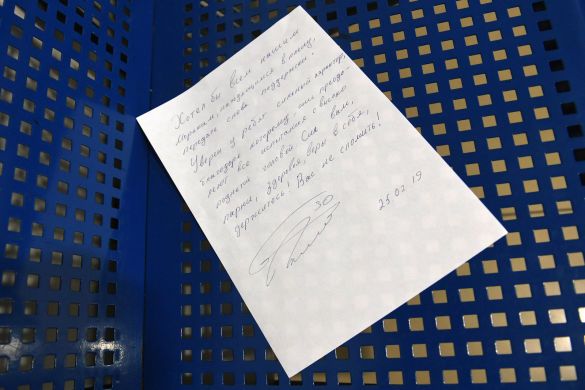 Хотел бы всем нашим
морякам, находящимся в плену,
передать слова поддержки.
Уверен у ребят сильный характер,
благодаря которому они преодо-
леют все испытания с высоко
поднятой головой. Сил вам,
парни, здоровья, веры в себя,
держитесь! Вас не сломить!
30
25 02 19